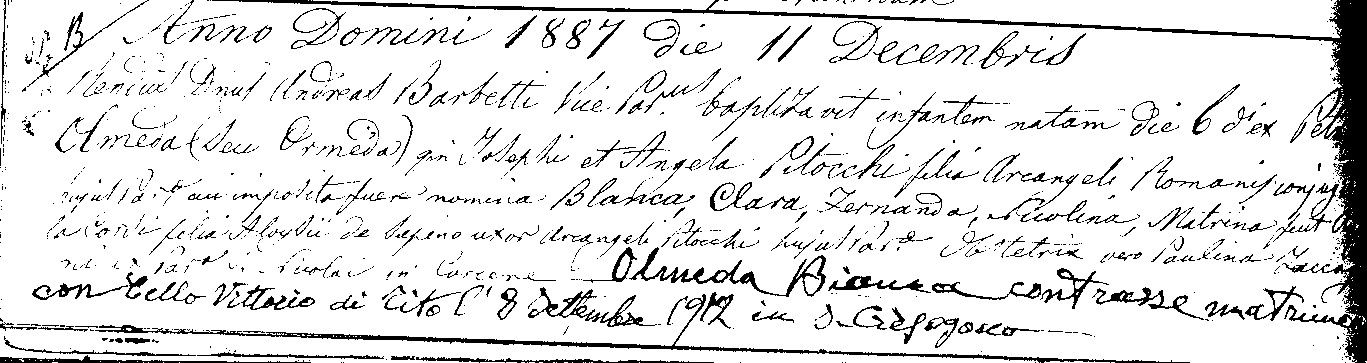 B Anno Domini 1887 die 11 Decembris
Rendus Dnus Andreas Barbetti Vice Parus baptizavit infantem natam die 6 di ex Pet
Olmeda (seu Ormeda) qm Josephi et Angela Pitocchi filia Arcangeli Romanis conjug
hujus Par cui imposita fuere nomina Blanca, Clara, Fernanda, Nicolina, Matrina fuit
la Conti filia Aloysii de Supino uxor Arcangeli Pitocchi hujus Par Obstetrix vero Paulina Zacca
ni ex Par S. Nicolai in Carcere Olmeda Bianca contrasse matrimo
con Tello Vittorio di Tito l' 8 settembre 1912 in S. Crisogono